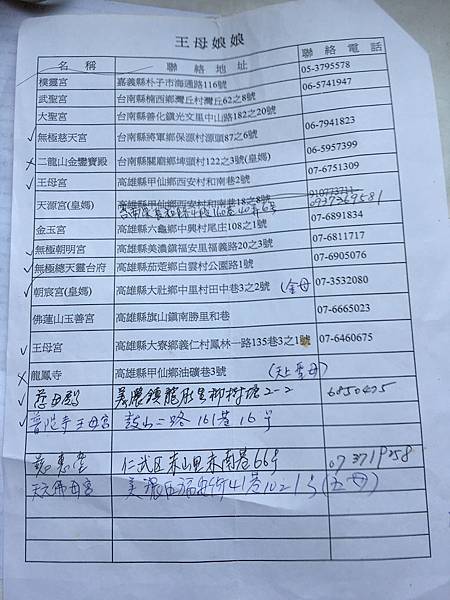 王母娘娘
名 稱 聯 絡 地 址 聯 絡 電 話
樸靈宮 嘉義縣朴子市海通路116號 05-3795578
武聖宮 台南縣楠西鄉灣丘村灣丘62之8號 06-5741947
大聖宮 台南縣善化鎮光文里中山路182之20號
✓ 無極慈天宮 台南縣將軍鄉保源村源頭87之6號 06-7941823
✗ 二龍山金鑾寶殿 台南縣關廟鄉埤頭村122之3號(皇媽) 06-5957399
✓ 王母宮 高雄縣甲仙鄉西安村和南巷2號 07-6751309
天源宮(皇媽) 高雄縣甲仙鄉西安村和南巷18之8號 0937369581
金玉宮 高雄縣六龜鄉中興村尾庄108之1號 07-6891834
✓ 無極朝明宮 高雄縣美濃鎮福安里福義路20之3號 07-6811717
✓ 無極總天靈台府 高雄縣茄萣鄉白雲村公園路1號 07-6905076
✓ 朝宸宮(皇媽) 高雄縣大社鄉中里村田中巷3之2號 (金母) 07-3532080
佛蓮山玉善宮 高雄縣旗山鎮南勝里和巷 07-6665023
✓ 王母宮 高雄縣大寮鄉義仁村鳳林一路135巷3之1號 07-6460675
✗ 龍鳳寺 高雄縣甲仙鄉油礦巷3號 (天上聖母)
✓ 慈母殿 美濃鎮龍肚里柳樹塘2-2 6850425
✓ 普陀寺王母宮 鼓山二路161巷16号
慈惠堂 仁武区赤山里赤南巷66号 07 3719258
天玄佛母宮 美濃区福安街41巷102-1号(五母)